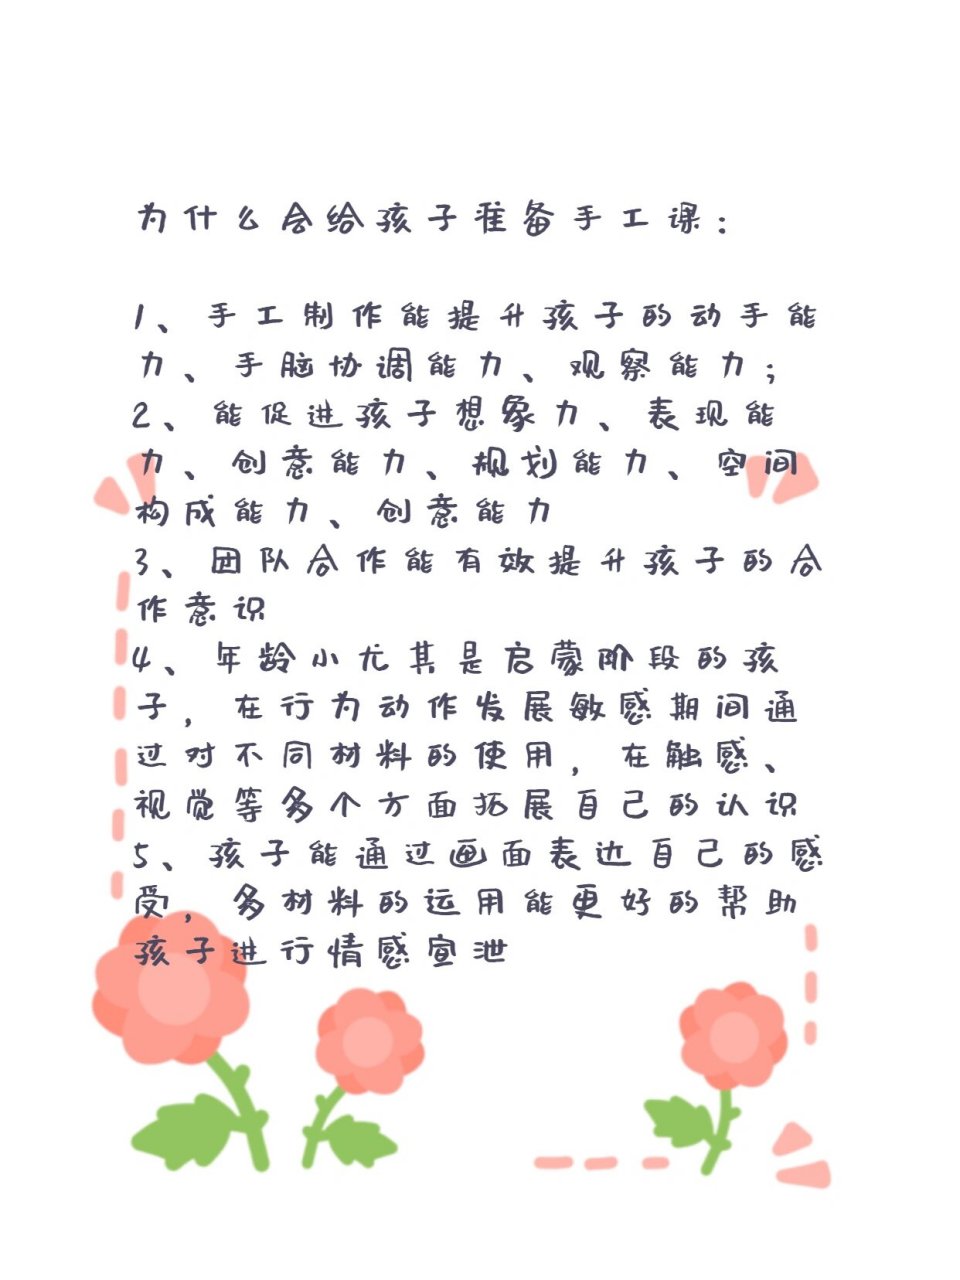 为什么会给孩子准备手工课：
1、手工制作能提升孩子的动手能
力、手脑协调能力、观察能力；
2、能促进孩子想象力、表现能
力、创意能力、规划能力、空间
构成能力、创意能力
3、团队合作能有效提升孩子的合
作意识
4、年龄小尤其是启蒙阶段的孩
子，在行为动作发展敏感期间通
过对不同材料的使用，在触感、
视觉等多个方面拓展自己的认识
5、孩子能通过画面表达自己的感
受，多材料的运用能更好的帮助
孩子进行情感宣泄